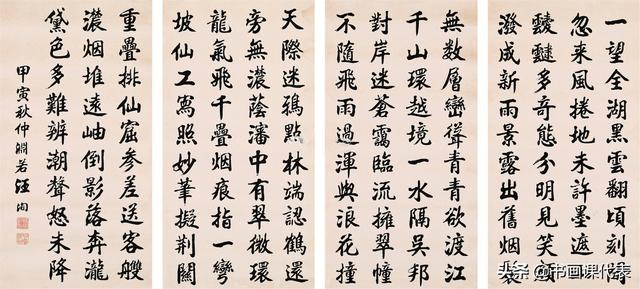 一望全湖黑雲翻頃刻間
忽来風捲地未許墨遮山
靉靆多奇態分明見笑顔
潑成新雨景露出舊烟鬟
無数層巒聳青青欲渡江
千山環越境一水隔吳邦
對岸迷蒼靄臨流擁翠幢
不隨飛雨過渾與浪花撞
天際迷鴉點林端認鶴還
旁無濃蔭瀋中有翠微環
龍氣飛千疊烟痕指一彎
坡仙工寫照妙筆擬荆關
重疊排仙窟參差送客艭
濃烟堆遠岫倒影落奔瀧
黛色多難辨潮聲怒未降
甲寅秋仲淵若汪洵
头条 @书画课代表